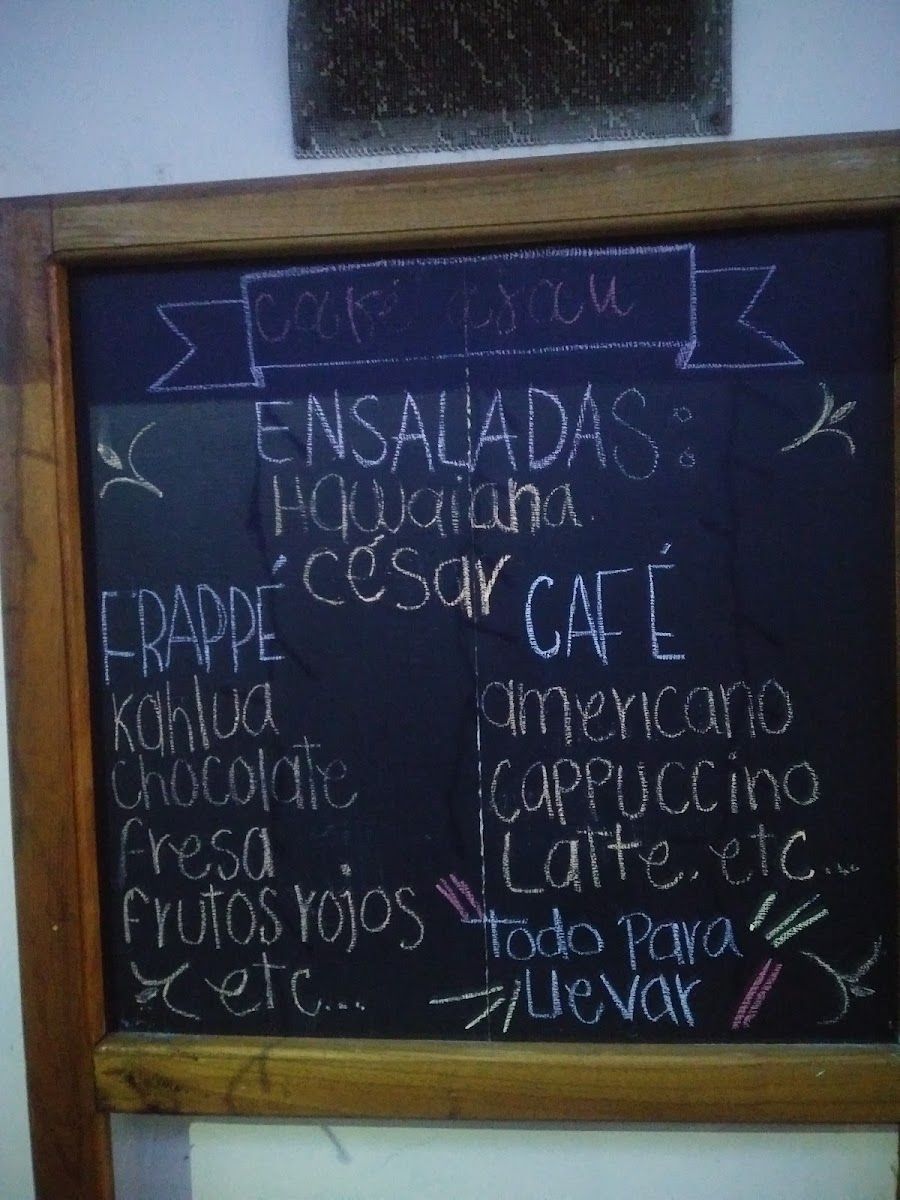 café ajau
ENSALADAS:
Hawaiana.
César
FRAPPÉ
kahlua
chocolate
fresa
frutos rojos
etc...
CAFÉ
americano
cappuccino
Latte. etc...
todo Para
llevar